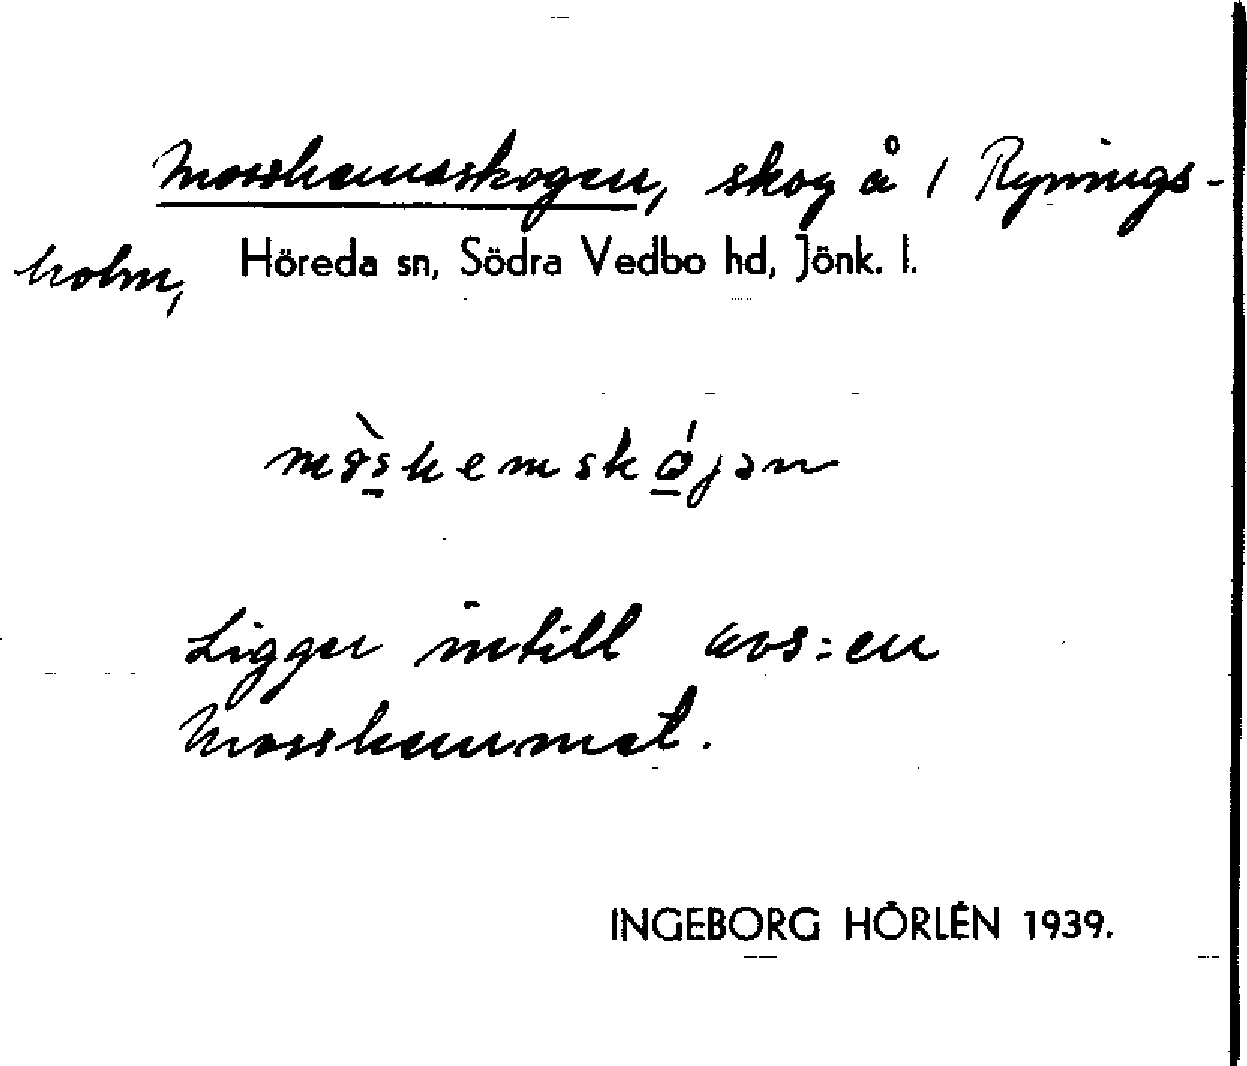 Mosshemsskogen, skog å 1 Rynings-
holm, Höreda sn, Södra Vedbo hd, Jönk. l.
Ligger intill avs:en
Mosshemmet.
INGEBORG HÖRLÉN 1939.